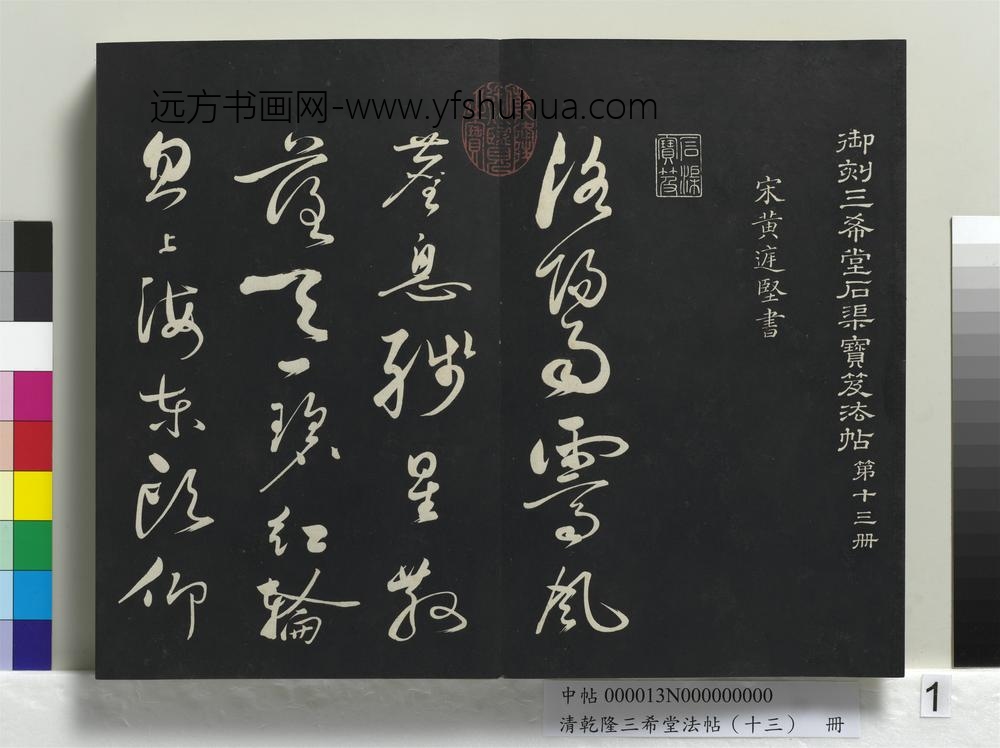 御刻三希堂石渠寶笈法帖 第十三冊
宋黃庭堅書
石渠寶笈
洛陽雨霽風
塵息殘星散
落天一碧紅輪
忽上海東頭仰
远方书画网-www.yfshuhua.com
中帖 000013N000000000
清乾隆三希堂法帖（十三） 冊
1